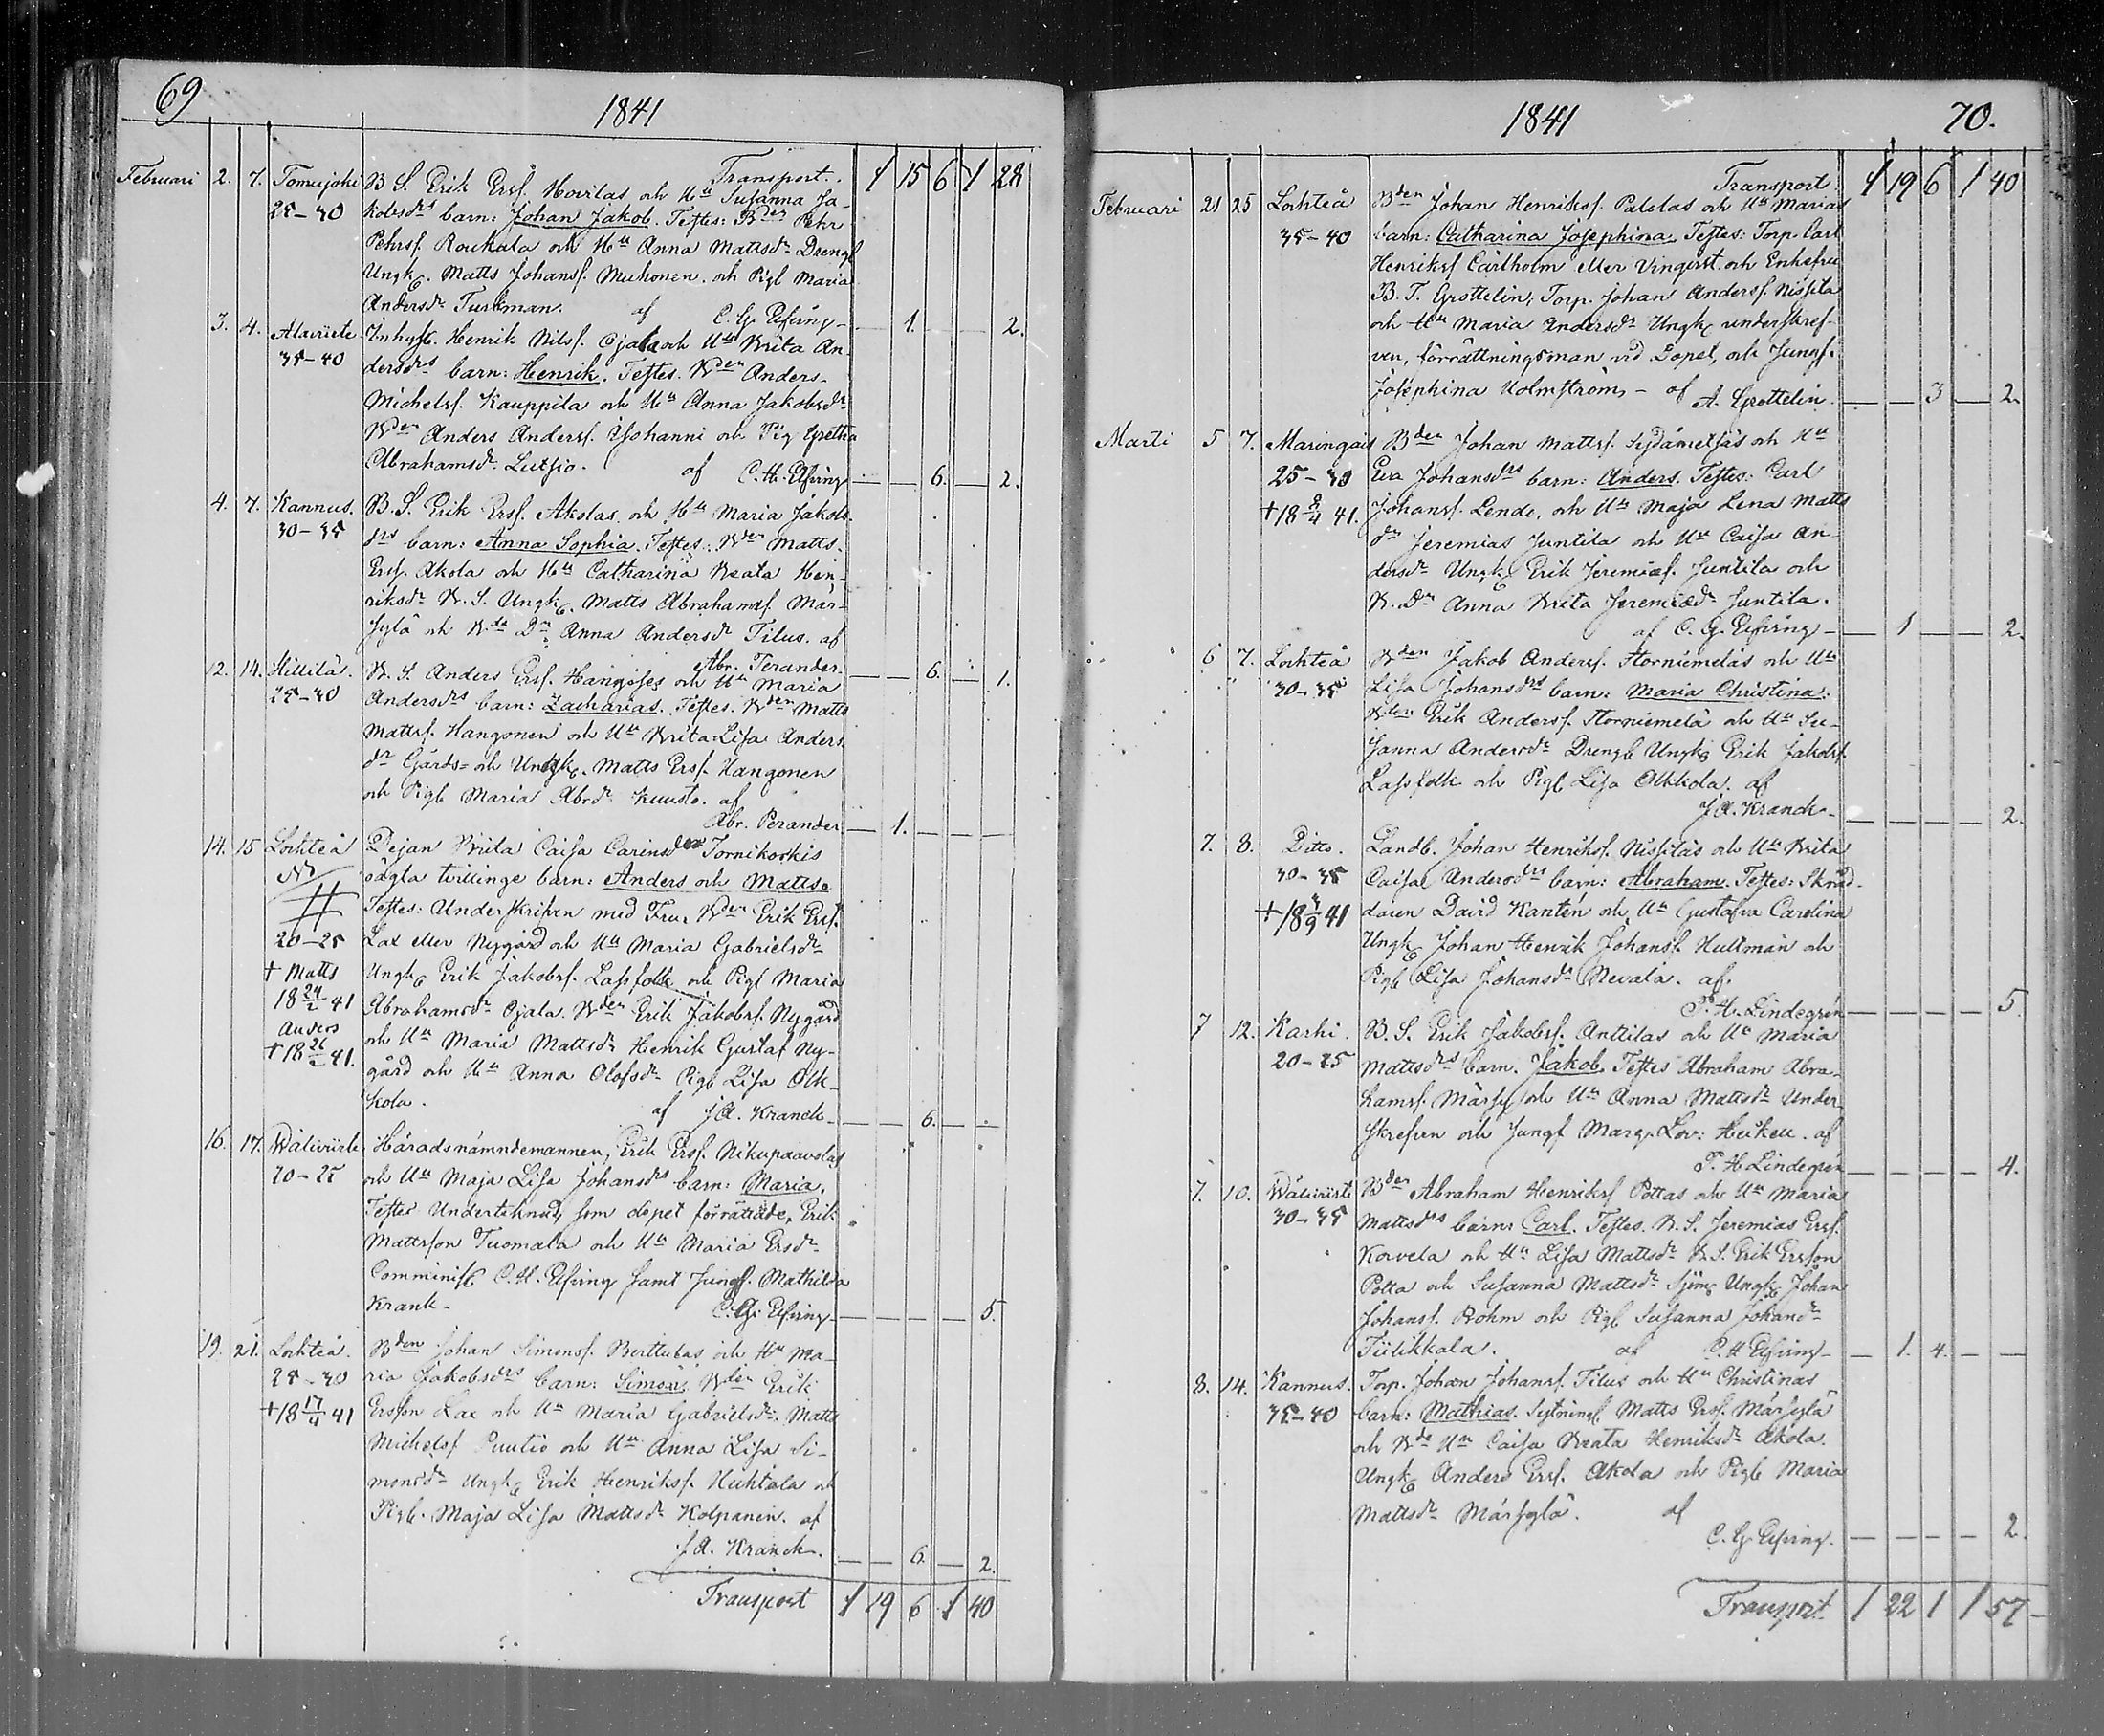 69
1841
Transport. 1 15 6 1 28
Februari 2. 7. Tomujoki B S. Erik Ersf. Hovilas och Hu Susanna Ja-
25-30 kobsdrs barn: Johan Jakob. Testes: Bden Pehr
Pehrsf. Roukala och Hu Anna Mattsdr Drengl
Ungk. Matts Johansf. Muhonen. och Pigl Maria
Andersdr Turkman. af C. G. Elfving — 1. — — 2.
3. 4. Alaviirte Inhys. Henrik Nilsf. Ojala och Hu Brita An-
35-40 dersdrs barn: Henrik. Testes. Bden Anders
Michelsf. Kauppila och Hu Anna Jakobsdr
Bden Anders Andersf. Yjohanni och Pig Gretha
Abrahamsdr. Lutsio. af C. H. Elfving — — 6. — 2.
4. 7. Kannus. B. S. Erik Ersf. Akolas. och Hu Maria Jakobs-
30-35 drs barn: Anna Sophia. Testes: Bden Matts
Ersf. Akola och Hu Catharina Beata Hen-
riksdr B. S. Ungk. Matts Abrahamsf. Mär-
sylä och Bde Dr Anna Andersdr Tilus. af
Abr. Perander. — — 6. — 1.
12. 14. Hillilä. B. S. Anders Ersf. Hangises och Hu Maria
25-30 Andersdrs barn: Zacharias. Testes. Bden Matts
Mattsf. Hangonen och Hu Brita Lisa Anders
dr Gårds- och Ungk. Matts Ersf. Hangonen
och Pigl Maria Abrdr Kuusto. af
Abr. Perander — 1. — — —
14. 15 Lochteå Dejan Brita Caisa Carinsdrs Tornikoskis
oägta tvillinge barn: Anders och Matts.
Testes: Underskrifven med Fru, Bden Erik Ersf.
20-25 Lax eller Nygård och Hu Maria Gabrielsdr
+ Matts Ungk Erik Jakobsf. Lassfolk och Pigl Maria
18 24/2 41 Abrahamsdr Ojala. Bden Erik Jakobsf. Nygård
Anders och Hu Maria Mattsdr Henrik Gustaf Ny-
+18 26/2 41. gård och Hu Anna Olofsdr Pigl Lisa Olk-
kola. af J A. Kranck — — 6. — .
16. 17. Wäliviirte Häradsnämndemannen, Erik Ersf. Nikupaavolas
20-25 och Hu Maja Lisa Johansdrs barn: Maria.
Testes Underteknad, som dopet förrättade, Erik
Mattsson Tuomala och Hu Maria Ersdr
Comminist C. H. Elfving samt Jungf. Mathilda
Krank. C. G. Elfving — — — — 5.
19. 21. Lochteå. Bden Johan Simonsf. Berttulas och Hu Ma-
25-30 ria Jakobsdrs barn: Simon. Bden Erik
+18 17/4 41 Ersson Lax och Hu Maria Gabrielsdr. Matts
Michelsf Puutio och Hu Anna Lisa Si-
monsdr Ungk Erik Henriksf. Huhtala och
Pigl. Maja Lisa Mattsdr Kolpanen. af
J A. Kranck. — — 6. — 2.
Transport 1 19 6 1 40
1841 70.
Transport. 1 19 6 1 40
Februari 21 25 Lochteå Bden Johan Henriksf. Palolas och Hu Marias
35-40 barn: Catharina Josephina. Testes: Torp. Carl
Henriksf Carlholm eller Vingerst. och Enkefru
B. T. Grottelin, Torp. Johan Andersf. Nissila
och Hu Maria Andersdr Ungk underskref-
ven, förrättningsman vid Dopet, och Jungf.
Josephina Holmström, — af A. Grottelin. — — 3 — 2.
Marti 5 7. Maringais Bden Johan Mattsf. Sydämetsäs och Hu
25-30 Eva Johansdrs barn: Anders. Testes: Carl
+18 8/4 41. Johansf. Lende, och Hu Maja Lena Matts
dr Jeremias Juntila och Hu Caisa An-
dersdr Ungk Erik Jeremiæf. Juntila och
B. Dr Anna Brita Jeremiædr Juntila.
af C. G. Elfving — 1 — — 2.
6 7. Lochteå Bden Jakob Andersf. Storniemeläs och Hu
30-35 Lisa Johansdrs barn: Maria Christina.
Bden Erik Andersf. Storniemelä och Hu Su-
sanna Andersdr Drengl Ungk Erik Jakobsf.
Lassfolk och Pigl Lisa Olkkola. af
J A. Kranck. — — — — 2.
7. 8. Ditto. Landb. Johan Henriksf. Nissilas och Hu Brita
30-35 Caisa Andersdrs barn: Abraham. Testes: Skräd-
+18 4/9 41 daren David Kantén och Hu Gustafva Carolina
Ungk Johan Henrik Johansf. Hultman och
Pigl Lisa Johansdr Nevala. af.
P. H. Lindegrén — — — — 5.
7 12. Karhi. B. S. Erik Jakobsf. Anttilas och Hu Maria
20-25 Mattsdrs barn. Jakob. Testes Abraham Abra-
hamsf. Märsy och Hu Anna Mattsdr Under
skrefven och Jungf Marg. Lov: Heikell. af
P. H Lindegrén — — — — 4.
7. 10. Wäliviirte Bden Abraham Henriksf Pottas och Hu Maria
30-35 Mattsdrs barn: Carl. Testes. B. S. Jeremias Ersf.
Korvela och Hu Lisa Mattsdr B. S. Erik Ersson
Potta och Susanna Mattsdr Ungk Johan
Johansf. Bohm och Pigl Susanna Johansdr
Tiilikkala. af C. H Elfving — 1. 4. — —
8. 14. Kannus. Torp. Johan Johansf. Tilus och Hu Christinas
35-40 barn: Mathias. Sytningf. Matts Ersf. Märsylä
och Bde Hu Caisa Beata Henriksdr Akola.
Ungk Anders Ersf. Akola och Pigl Maria
Mattsdr Märsylä. af
C. G Elfving. — — — — 2.
Transport. 1 22 1 1 57